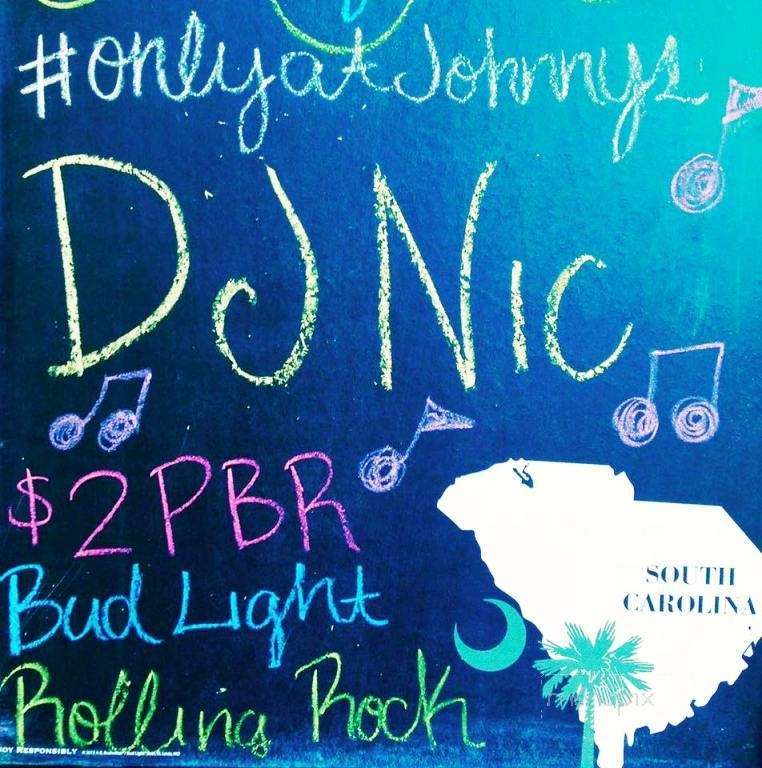 #onlyatJohnnys
DJ Nic
$2 PBR
Bud Light
Rolling Rock
SOUTH
CAROLINA
RESPONSIBLY